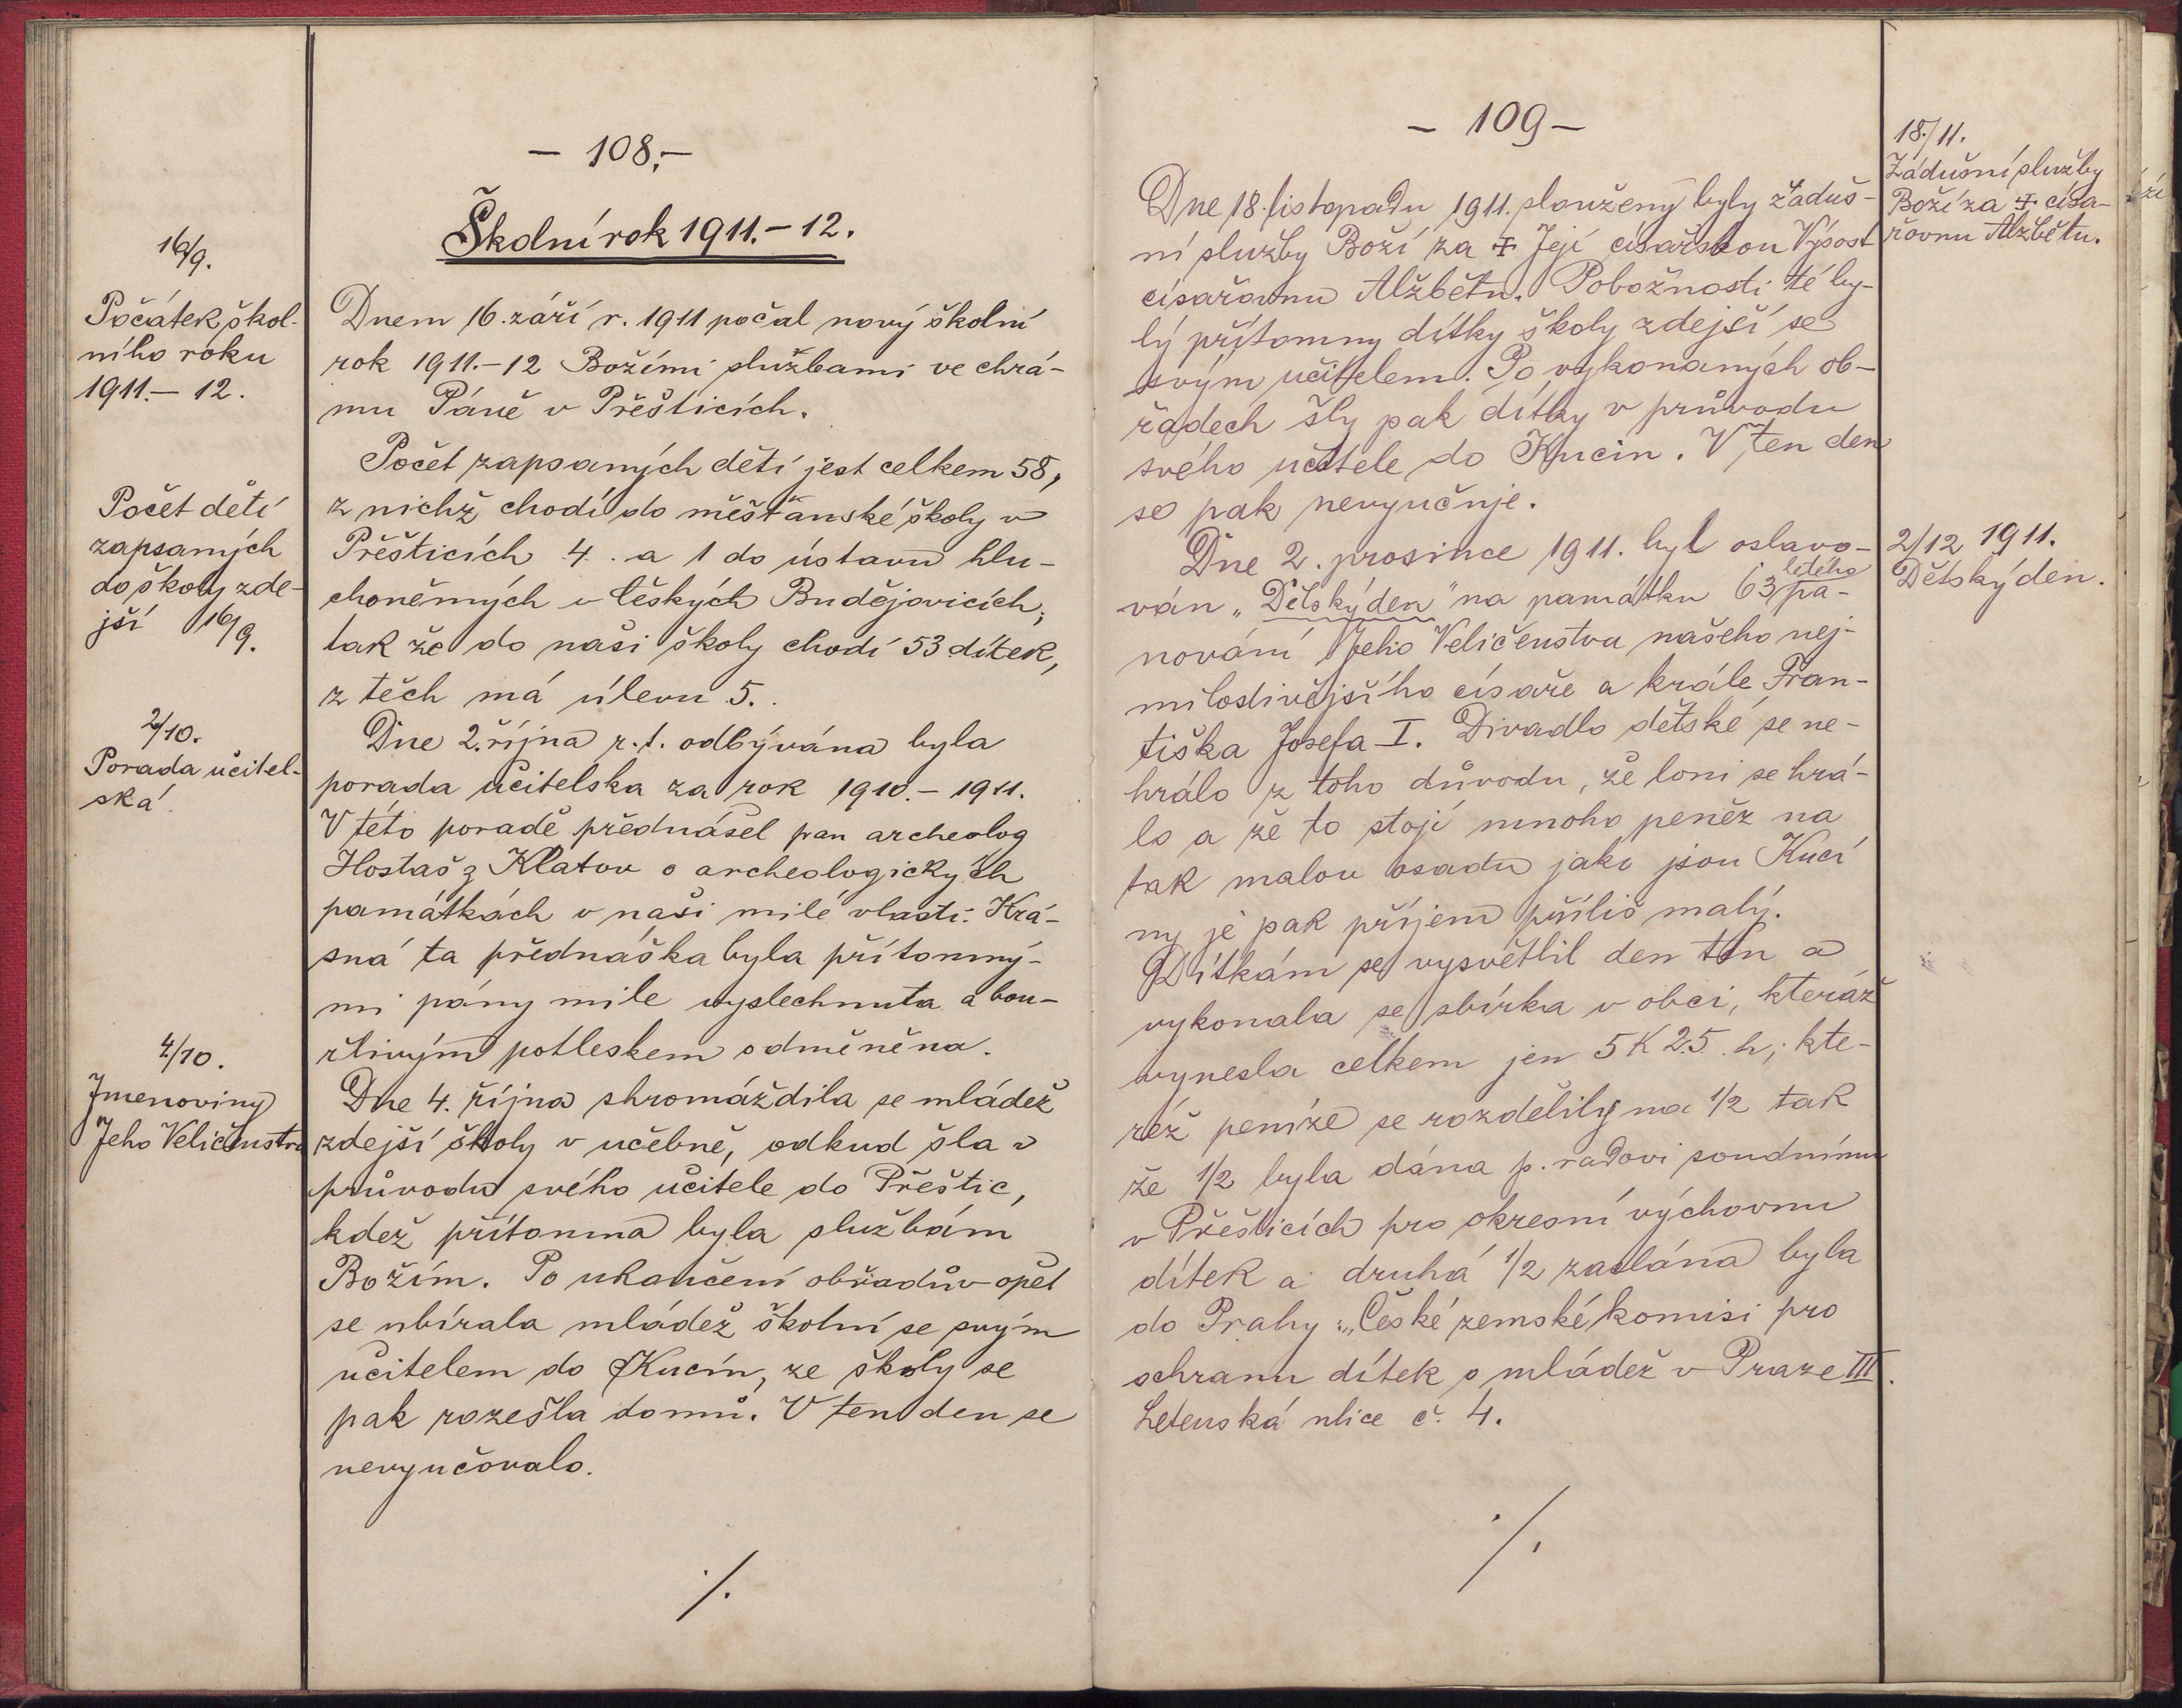 - 108.-
Školní rok 1911.-12.
16/9.
Počátek škol-
ního roku
1911.- 12.
Dnem 16. září r. 1911 počal nový školní
rok 1911.-12 Božími službami ve chrá-
mu Páně v Přešticích.
Počet dětí
zapsaných
do školy zde-
jší 16/9.
Počet zapsaných dětí jest celkem 58,
z nichž chodí do měšťanské školy v
Přešticích 4. a 1 do ústavu hlu-
choněmých v Českých Budějovicích;
tak že do naši školy chodí 53 dítek,
z těch má úlevu 5.
2/10.
Porada učitel-
ská
Dne 2. října r. t. odbývána byla
porada učitelska za rok 1910.- 1911.
V této poradě přednášel pan archeolog
Hostaš z Klatov o archeologických
památkách v naši milé vlasti. Krá-
sná ta přednáška byla přítomný-
mi pány mile vyslechnuta a bou-
řlivým potleskem odměněna.
4/10.
Jmenoviny
Jeho Veličenstva
Dne 4. října shromáždila se mládež
zdejší školy v učebně, odkud šla v
průvodu svého učitele do Přeštic,
kdež přítomna byla službám
Božím. Po ukončení obřadův opět
se ubírala mládež školní se svým
učitelem do Kucín, ze školy se
pak rozešla domů. V ten den se
nevyučovalo.
./.
- 109 -
Dne 18. listopadu 1911. slouženy byly žaduš-
ní služby Boží za ✝ Její císařskou Výsost
císařovnu Alžbětu. Pobožnosti té by-
ly přítomny dítky školy zdejší se
svým učitelem. Po vykonaných ob-
řadech šly pak dítky v průvodu
svého učitele do Kucin. V ten den
se pak nevyučuje.
18./11.
Zádušní služby
Boží za ✝ císa-
řovnu Alžbětu.
Dne 2. prosince 1911. byl oslavo-
ván „Dětský den" na památku 63 letého pa-
nování Jeho Veličenstva našeho nej-
milostivějšího císaře a krále Fran-
tiška Josefa I. Divadlo dětské se ne-
hrálo z toho důvodu, že loni se hrá-
lo a že to stojí mnoho peněz na
tak malou osadu jako jsou Kucí
ny je pak příjem příliš malý.
Dítkám se vysvětlil den ten a
vykonala se sbírka v obci, kteráž
vynesla celkem jen 5 K 25 h; kte-
réž peníze se rozdělily na 1/2 tak
že 1/2 byla dána p. radovi soudnímu
v Přešticích pro okresní výchovnu
dítek a druhá 1/2 zaslána byla
do Prahy: „České zemské komisi pro
ochranu dítek o mládež v Praze III.
Letenská ulice č. 4.
2/12 1911.
Dětský den.
./.